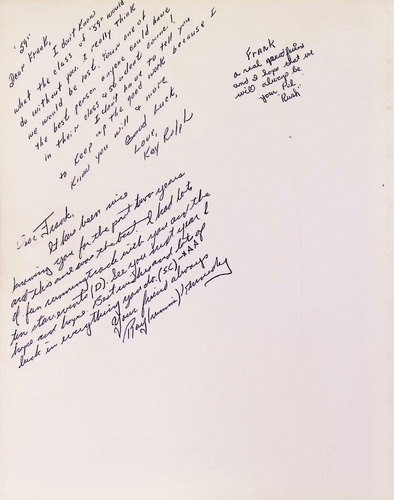 "59"
Dear Frank,
I don't know
what the class of "59" would
do without you. I really think
we would be lost. Your one of
the best person anyone could have
in their class a student council.
I don't have to tell you
to keep up the good work because I
know you will & more
Good Luck,
Love,
Kay Rolph
FRANK
a real sport fella
and I hope that we
will always be
your Pal
Rush
Dear Frank,
It has been nice
knowing you for the past two years
and this one was the best. I had lots
of fun running track with you and the
ten star events (D). See you next year I
hope and hope. Best wishes and lots of
luck in everything you do. (SC) *AAA
Your friend always
Ray